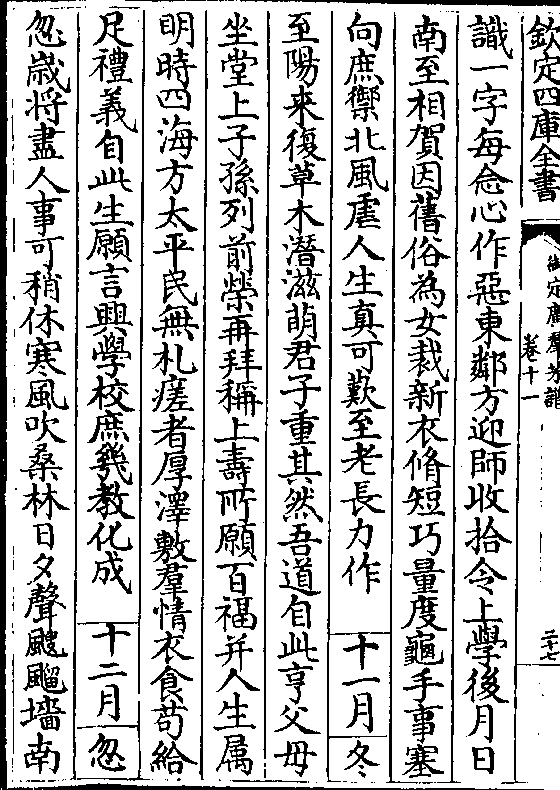 欽定四庫全書
卷十一
識一字每念心作惡東鄰方迎師收拾令上學後月日
南至相賀因舊俗為女裁新衣脩短巧量度龜手事塞
向庶禦北風虐人生真可歎至老長力作 十一月 冬
至陽來復草木潛滋萌君子重其然吾道自此亨父母
坐堂上子孫列前榮再拜稱上壽所願百福并人生属
明時四海方太平民無札瘥者厚澤敷羣情衣食苟給
足禮義自此生願言興學校庶幾教化成 十二月 忽
忽歲將盡人事可稍休寒風吹桑林日夕聲颼飀墻南